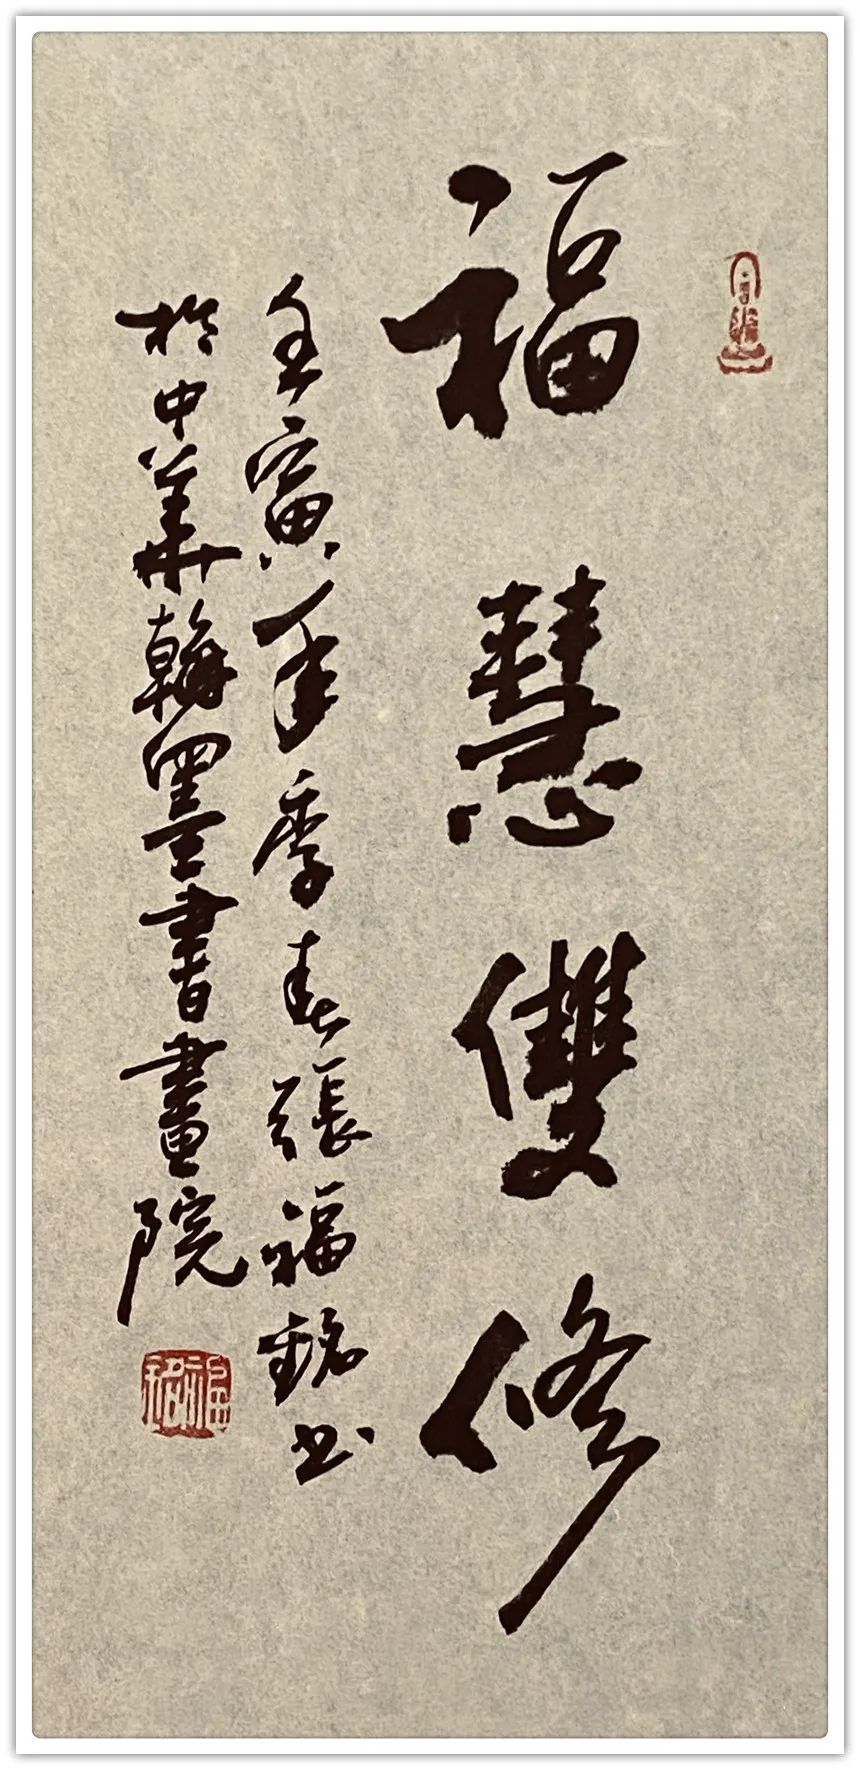 福慧雙修
壬寅年季春張福銘书
於中華翰墨書畫院